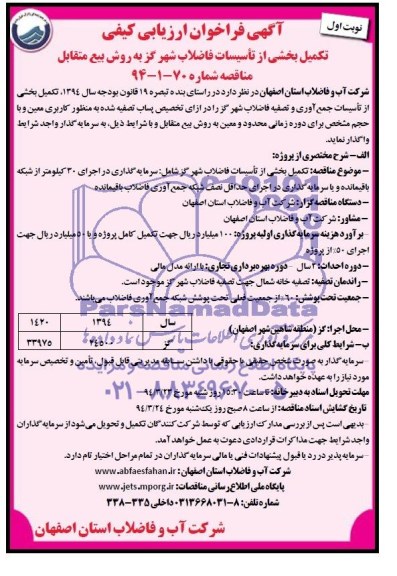 نوبت اول
آگهی فراخوان ارزیابی کیفی
تکمیل بخشی از تأسیسات فاضلاب شهر گز به روش بیع متقابل
مناقصه شماره ۷۰-۱-۹۴
شرکت آب و فاضلاب استان اصفهان در نظر دارد در راستای بند ه تبصره ۱۹ قانون بودجه سال ۱۳۹۴، تکمیل بخشی
از تأسیسات جمع آوری و تصفیه فاضلاب شهر گز را در ازای تخصیص پساب تصفیه شده به منظور کاربری معین و با
حجم مشخص برای دوره زمانی محدود و معین به روش بیع متقابل و با شرایط ذیل، به سرمایه گذار واجد شرایط
واگذار نماید.
الف - شرح مختصری از پروژه:
- موضوع مناقصه: تکمیل بخشی از تأسیسات فاضلاب شهر گز شامل: سرمایه گذاری در اجرای ۳۰ کیلومتر از شبکه
باقیمانده و یا سرمایه گذاری در اجرای حداقل نصف شبکه جمع آوری فاضلاب باقیمانده
- دستگاه مناقصه گزار: شرکت آب و فاضلاب استان اصفهان
- مشاور: شرکت آب و فاضلاب استان اصفهان
- برآورد هزینه سرمایه گذاری اولیه پروژه: ۱۰۰ میلیارد ریال جهت تکمیل کامل پروژه و یا ۵۰ میلیارد ریال جهت
اجرای ۵۰٪ از پروژه
- دوره احداث: ۲ سال - دوره بهره برداری تجاری: با ارائه مدل مالی
- راندمان تصفیه: تصفیه خانه شمال جهت تصفیه فاضلاب شهر گز موجود است.
- جمعیت تحت پوشش: ۶۰٪ از جمعیت فعلی تحت پوشش شبکه جمع آوری فاضلاب می باشند.
سال ۱۳۹۴ ۱۴۲۰
- محل اجرا: گز (منطقه شاهین شهر اصفهان)
گز ۲۴۵۰۰ ۳۳۹۷۵
ب - شرایط کلی برای سرمایه گذاری:
- سرمایه گذار به صورت شخص حقیقی یا حقوقی با داشتن سابقه مدیریتی قابل قبول، تأمین و تخصیص سرمایه
مورد نیاز را به عهده خواهد داشت.
مهلت تحویل اسناد به دبیرخانه: تا ساعت ۱۵:۳۰ روز شنبه مورخ ۹۴/۳/۲۳
تاریخ گشایش اسناد مناقصه: از ساعت ۸ صبح روز یک شنبه مورخ ۹۴/۳/۲۴
- بدیهی است پس از بررسی مدارک ارزیابی که توسط شرکت کنندگان تکمیل و تحویل می شود از سرمایه گذاران
واجد شرایط جهت مذاکرات قراردادی دعوت به عمل خواهد آمد.
- سرمایه پذیر در رد یا قبول پیشنهادات فنی یا مالی سرمایه گذاران در تمام مراحل اختیار تام دارد.
شرکت آب و فاضلاب استان اصفهان: www.abfaesfahan.ir
پایگاه ملی اطلاع رسانی مناقصات: www.jets.mporg.ir
شماره تلفن: ۸-۰۳۱۳۶۶۸۰۳۱ داخلی ۳۳۵-۳۳۸
شرکت آب و فاضلاب استان اصفهان
ParsNamadData
۰۲۱-۸۸۳۴۹۶۷۰